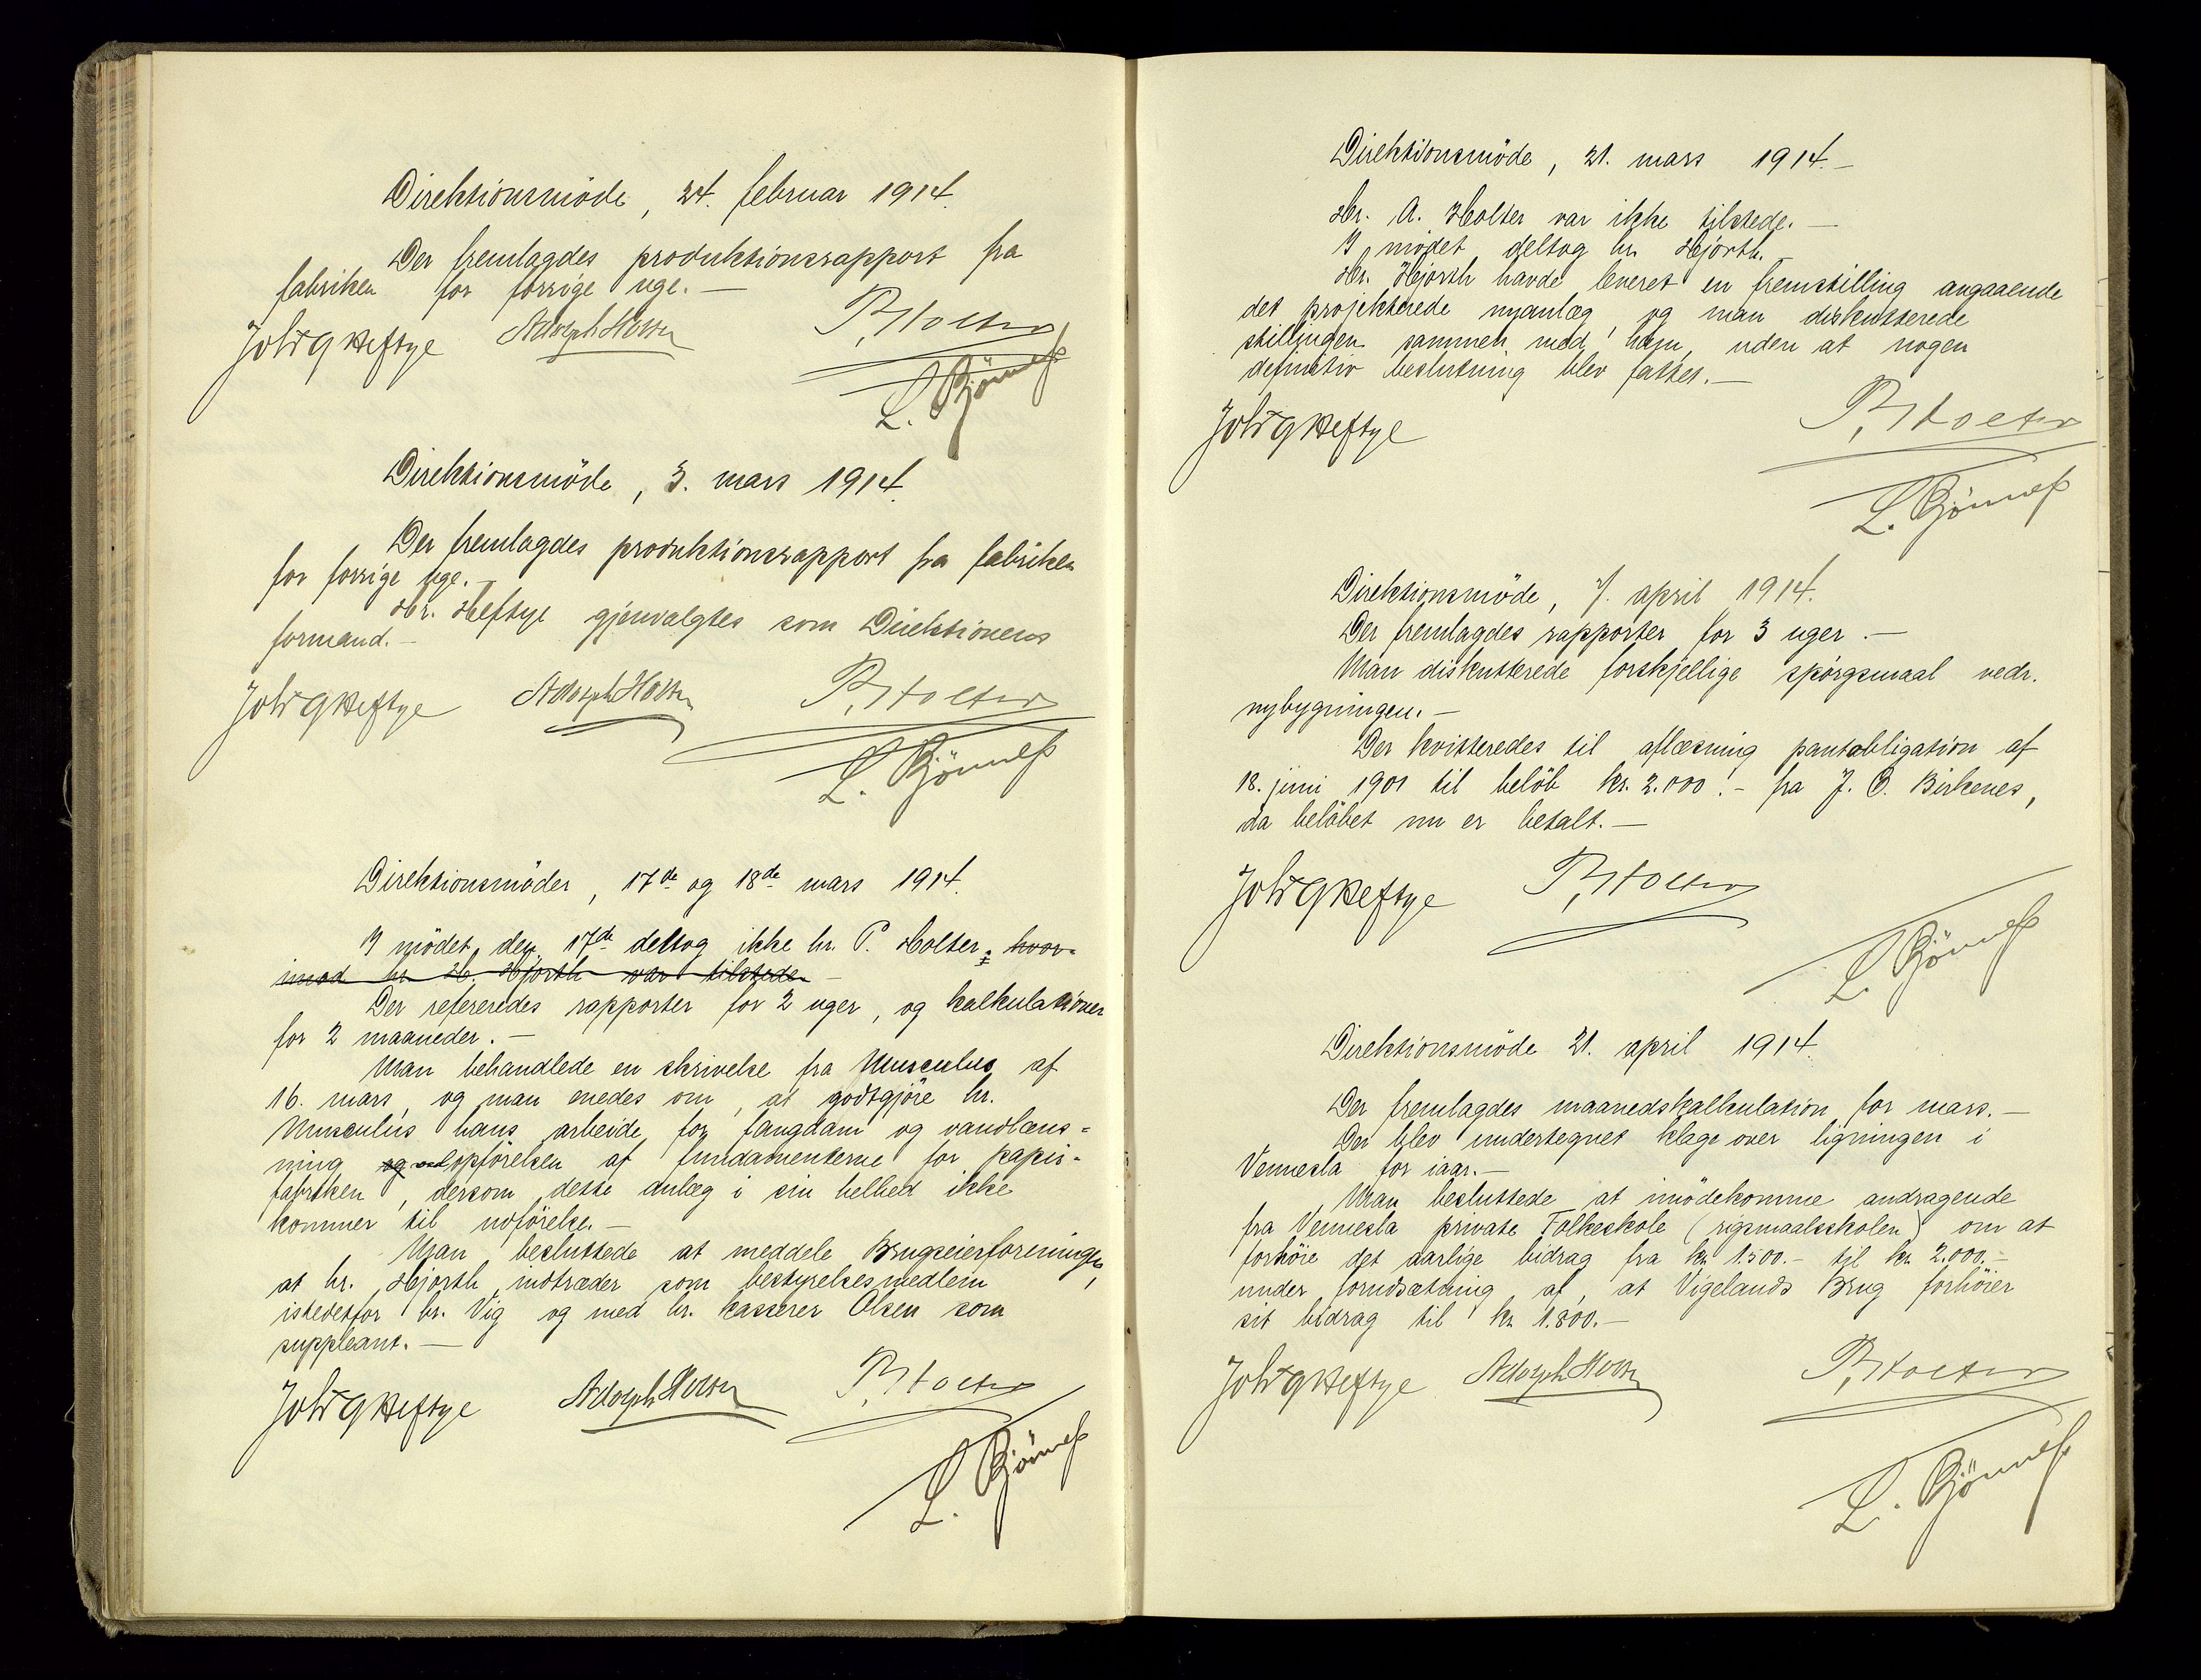 Direktionsmöde, 24. februar 1914.
Der fremlagdes produktionsrapport fra
fabriken for forrige uge. —
Joh T G Heftye Adolph Holter P. Holter
L. Gjömeß
Direktionsmöde, 3. mars 1914.
Der fremlagdes produktionsrapport fra fabriken
for forrige uge. —
Hr. Heftye gjenvalgtes som Direktionens
formand. —
Joh T G Heftye Adolph Holter P. Holter
L. Gjömeß
Direktionsmöder, 17de og 18de mars 1914.
I mödet den 17de deltog ikke hr. P. Holter, hvor-
imod hr. H. Hjorth var tilstede. —
Der refereredes rapporter for 2 uger, og kalkulationer
for 2 maaneder. —
Man behandlede en skrivelse fra Musculus af
16. mars, og man enedes om, at godtgjöre hr.
Musculus hans arbeide for fangdam og vandlæns-
ning og ved opförelsen af fundamenterne for papir-
fabriken, dersom dette anlæg i sin helhed ikke
kommer til udförelse. —
Man besluttede at meddele Brugseierforeningen,
at hr. Hjorth indtræder som bestyrelsesmedlem
istedetfor hr. Vig og med hr. kasserer Olsen som
suppleant. —
Joh T G Heftye Adolph Holter P. Holter
L. Gjömeß
Direktionsmöde, 21. mars 1914. —
Hr. A. Holter var ikke tilstede. —
I mödet deltog hr. Hjorth. —
Hr. Hjorth havde leveret en fremstilling angaaende
det projekterede nyanlæg og man diskutterede
stillingen sammen med ham, uden at nogen
definitiv beslutning blev fattet. —
Joh T G Heftye P. Holter
L. Gjömeß
Direktionsmöde, 7. april 1914.
Der fremlagdes rapporter for 3 uger. —
Man diskutterede forskjellige spörgsmaal vedr.
nybygningen. —
Der kvitteredes til aflæsning pantobligation af
18. juni 1901 til belöb kr. 2.000. – fra J. O. Birkenes,
da belöbet nu er betalt. —
Joh T G Heftye P. Holter
L. Gjömeß
Direktionsmöde 21. april 1914.
Der fremlagdes maanedskalkulation for mars. —
Der blev undertegnet klage over ligningen i
Vennesla for iaar. —
Man besluttede at imödekomme andragende
fra Vennesla private Folkeskole (rigsmaalsskolen) om at
forhöie det aarlige bidrag fra kr. 1.500.– til kr. 2.000.–
under forudsætning af, at Vigelands Brug forhöier
sit bidrag til kr. 1.800. —
Joh T G Heftye Adolph Holter P. Holter
L. Gjömeß